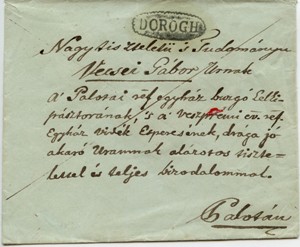 DOROGH
Nagytiszteletü s Tudományu
Vecsei Gábor Urnak
a' Palotai ref. egyház buzgó Lelki-
pásztorának, 's a Veszprémi ev. ref.
Egyház vidék Esperesének, draga jó
akaró Uramnak alázatos tiszte-
lettel és teljes bizodalommal.
Palotán